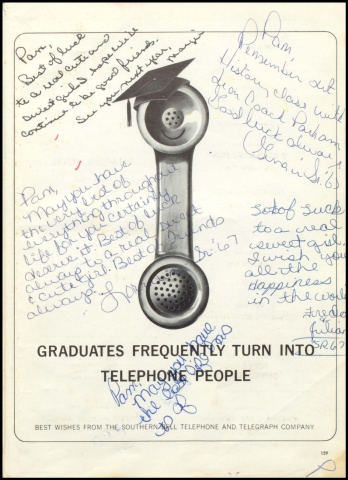 Pam,
Best of luck
to a real cute and
sweet girl. I hope we're
continue to be good friends.
See you next year,
Pam
Remember out
History class with
Coach Parham
Good luck always
Sr. 67
Pam,
May you have
the very best of
everything throughout
life for you certainly
deserve it. Best of luck
always to a real sweet
& cute girl. Best of friends
always.
Sr. '67
of luck
to a real
sweet girl.
I wish you
all the
Happiness
in the world
SR 67
GRADUATES FREQUENTLY TURN INTO
TELEPHONE PEOPLE
Pam,
May you have
the best
BEST WISHES FROM THE SOUTHERN BELL TELEPHONE AND TELEGRAPH COMPANY
159